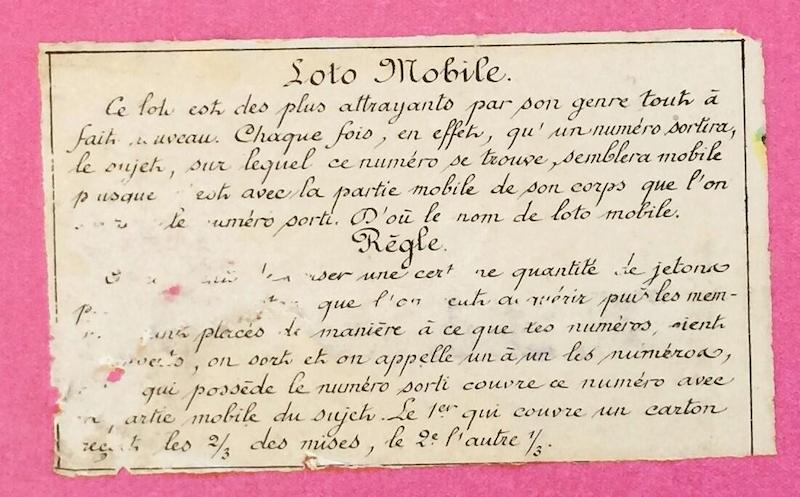 Loto Mobile.
Ce loto est des plus attrayants par son genre tout à
fait nouveau. Chaque fois, en effet, qu'un numéro sortira,
le sujet, sur lequel ce numéro se trouve, semblera mobile
puisque est avec la partie mobile de son corps que l'on
le numéro sorti. D'où le nom de loto mobile.
Règle.
une quantité de jetons
que l'on veut acquérir puis les mem-
placés de manière à ce que les numéros, soient
, on sort et on appelle un à un les numéros,
qui possède le numéro sorti couvre ce numéro avec
partie mobile du sujet. Le 1er qui couvre un carton
reçoit les 2/3 des mises, le 2e l'autre 1/3.